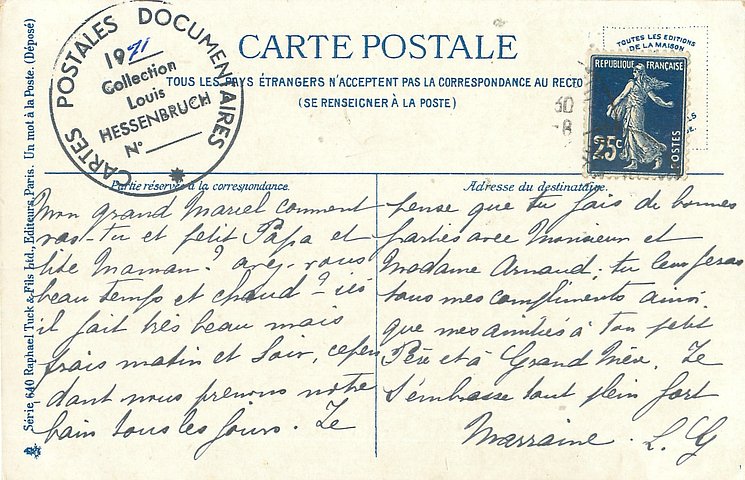 CARTES POSTALES DOCUMENTAIRES
1971
Collection
Louis
HESSENBRUCH
N°
CARTE POSTALE
TOUS LES PAYS ÉTRANGERS N'ACCEPTENT PAS LA CORRESPONDANCE AU RECTO
(SE RENSEIGNER À LA POSTE)
TOUTES LES EDITIONS
DE LA MAISON
REPUBLIQUE FRANÇAISE
25c
POSTES
Série 640 Raphael Tuck & Fils Ltd., Editeurs, Paris. Un mot à la Poste. (Déposé)
Partie réservée à la correspondance.
Mon grand Marcel comment
vas-tu et petit Papa et
tite Maman? avez-vous
beau temps et chaud? ici
il fait très beau mais
frais matin et soir, cepen
dant nous prenons notre
bain tous les jours. Je
Adresse du destinataire.
pense que tu fais de bonnes
parties avec Monsieur et
Madame Arnaud; tu leur feras
tous mes compliments ainsi
que mes amitiés à ton petit
Père et à Grand Mère. Je
t'embrasse tout plein fort
Marraine. L. G